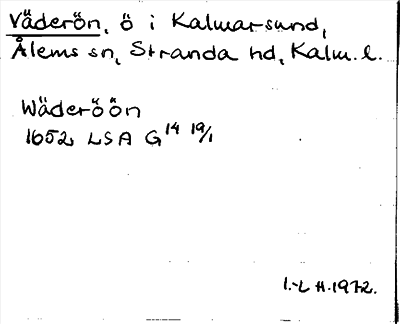 Väderön, ö i Kalmarsund,
Ålems sn, Stranda hd, Kalm. l.
Wäderöön
1652 LSA G14 19/1
I.-L H. 1972.